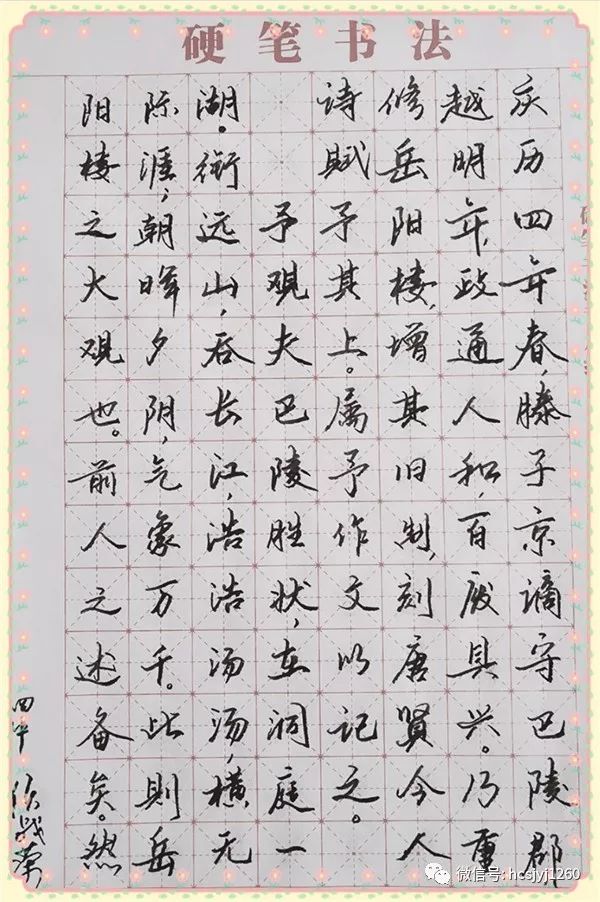 硬笔书法
庆历四年春，滕子京谪守巴陵郡
越明年，政通人和，百废具兴。乃重
修岳阳楼，增其旧制，刻唐賢今人
诗賦予其上。属予作文以记之。
予观夫巴陵胜状，在洞庭一
湖。衔远山，吞长江，浩浩汤汤，横无
际涯，朝晖夕阴，气象万千。此則岳
阳楼之大观也。前人之述备矣。然
微信号: hcsjyj1260